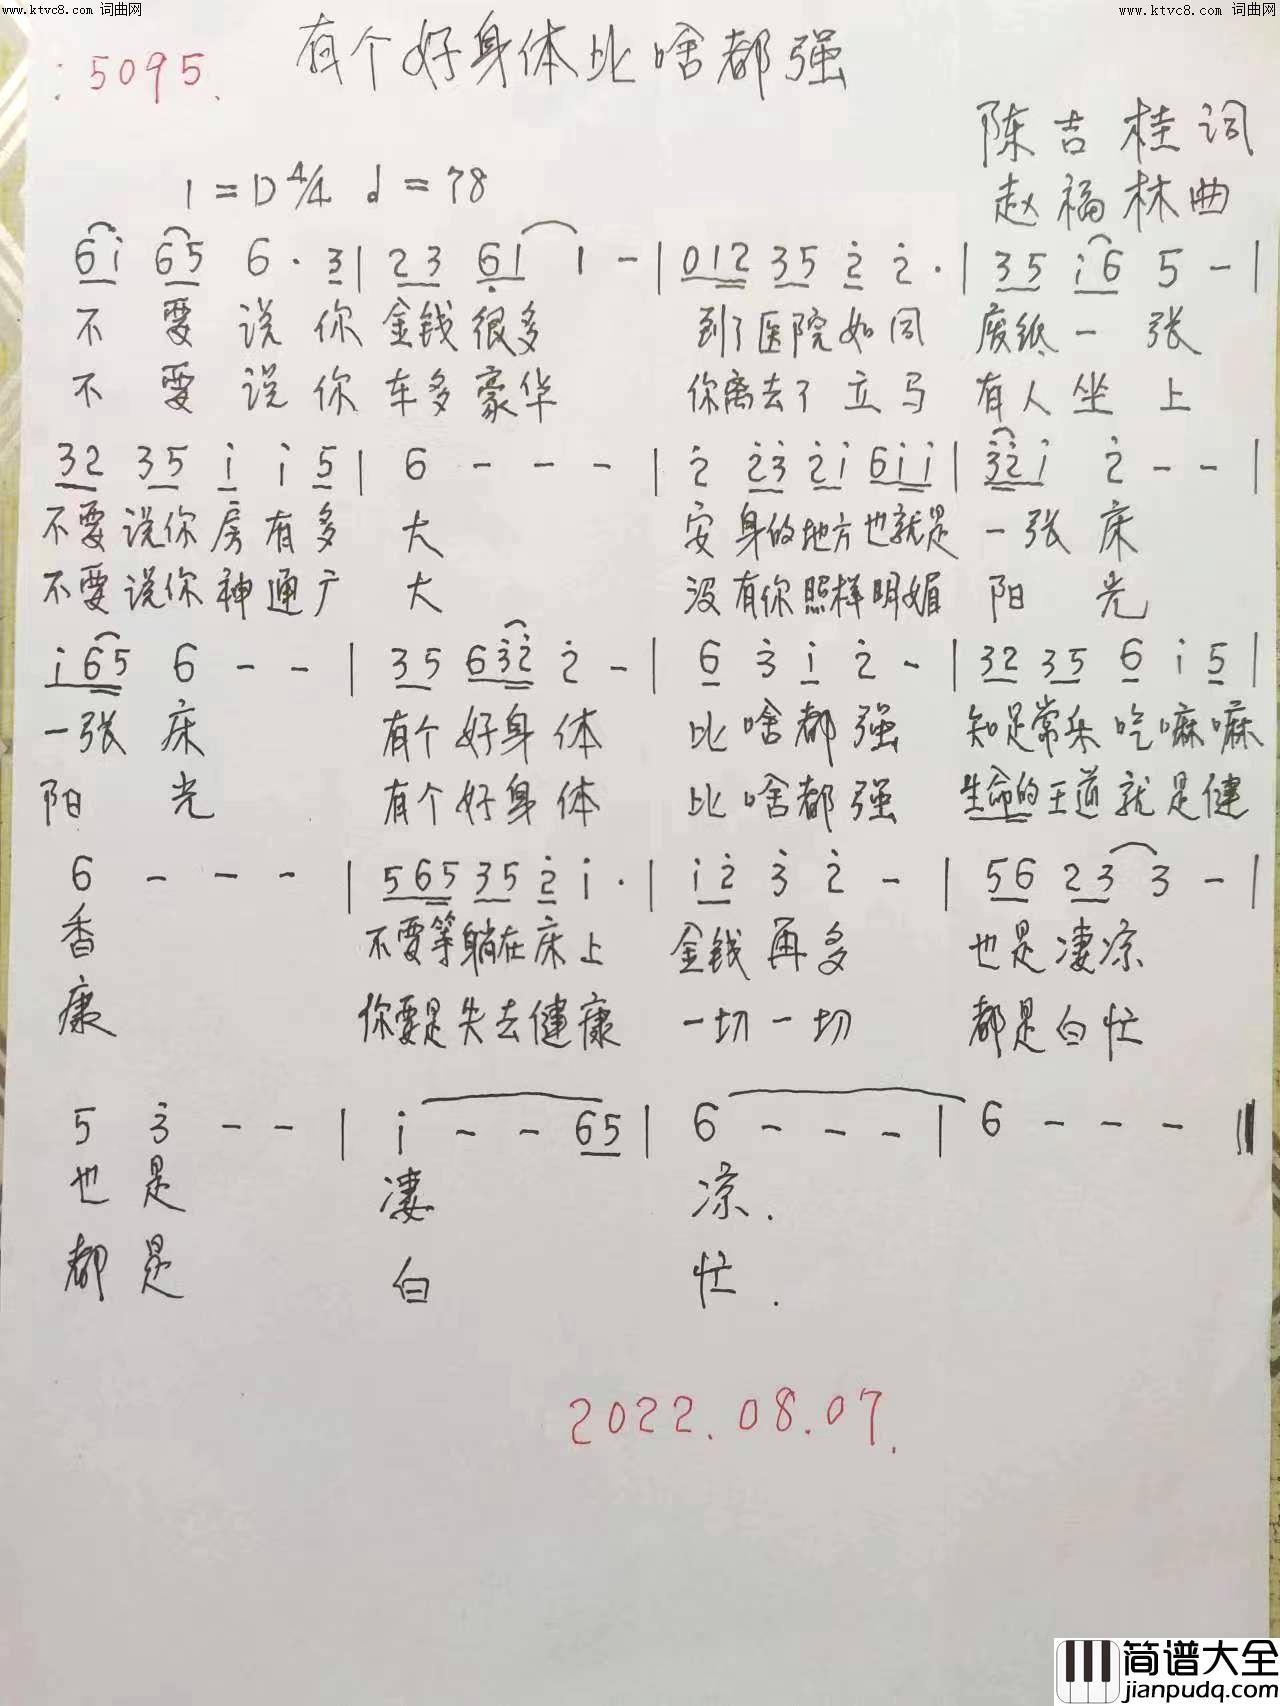 www.ktvc8.com 词曲网
www.ktvc8.com 词曲网
:5095.
有个好身体比啥都强
陈吉桂词
赵福林曲
1=D 4/4 d=78
6i 65 6·3|23 61 1-|012 35 2 2·|35 i6 5-|
不要说你金钱很多 到了医院如同 废纸一张
不要说你车多豪华 你离去了立马 有人坐上
32 35 i i 5|6---|2 23 2i 6ii|32i 2--|
不要说你房有多 大 安身的地方也就是 一张床
不要说你神通广 大 没有你照样明媚 阳光
i65 6--|35 632 2-|6 3 i 2-|32 35 6 i 5|
一张床 有个好身体 比啥都强 知足常乐吃嘛嘛
阳光 有个好身体 比啥都强 生命的王道就是健
6---|565 35 2 i·|i2 3 2-|56 23 3-|
香 不要等躺在床上 金钱再多 也是凄凉
康 你要是失去健康 一切一切 都是白忙
5 3--|i--65|6---|6---‖
也是 凄 凉.
都是 白 忙.
2022.08.07.
简谱大全
jianpudq.com